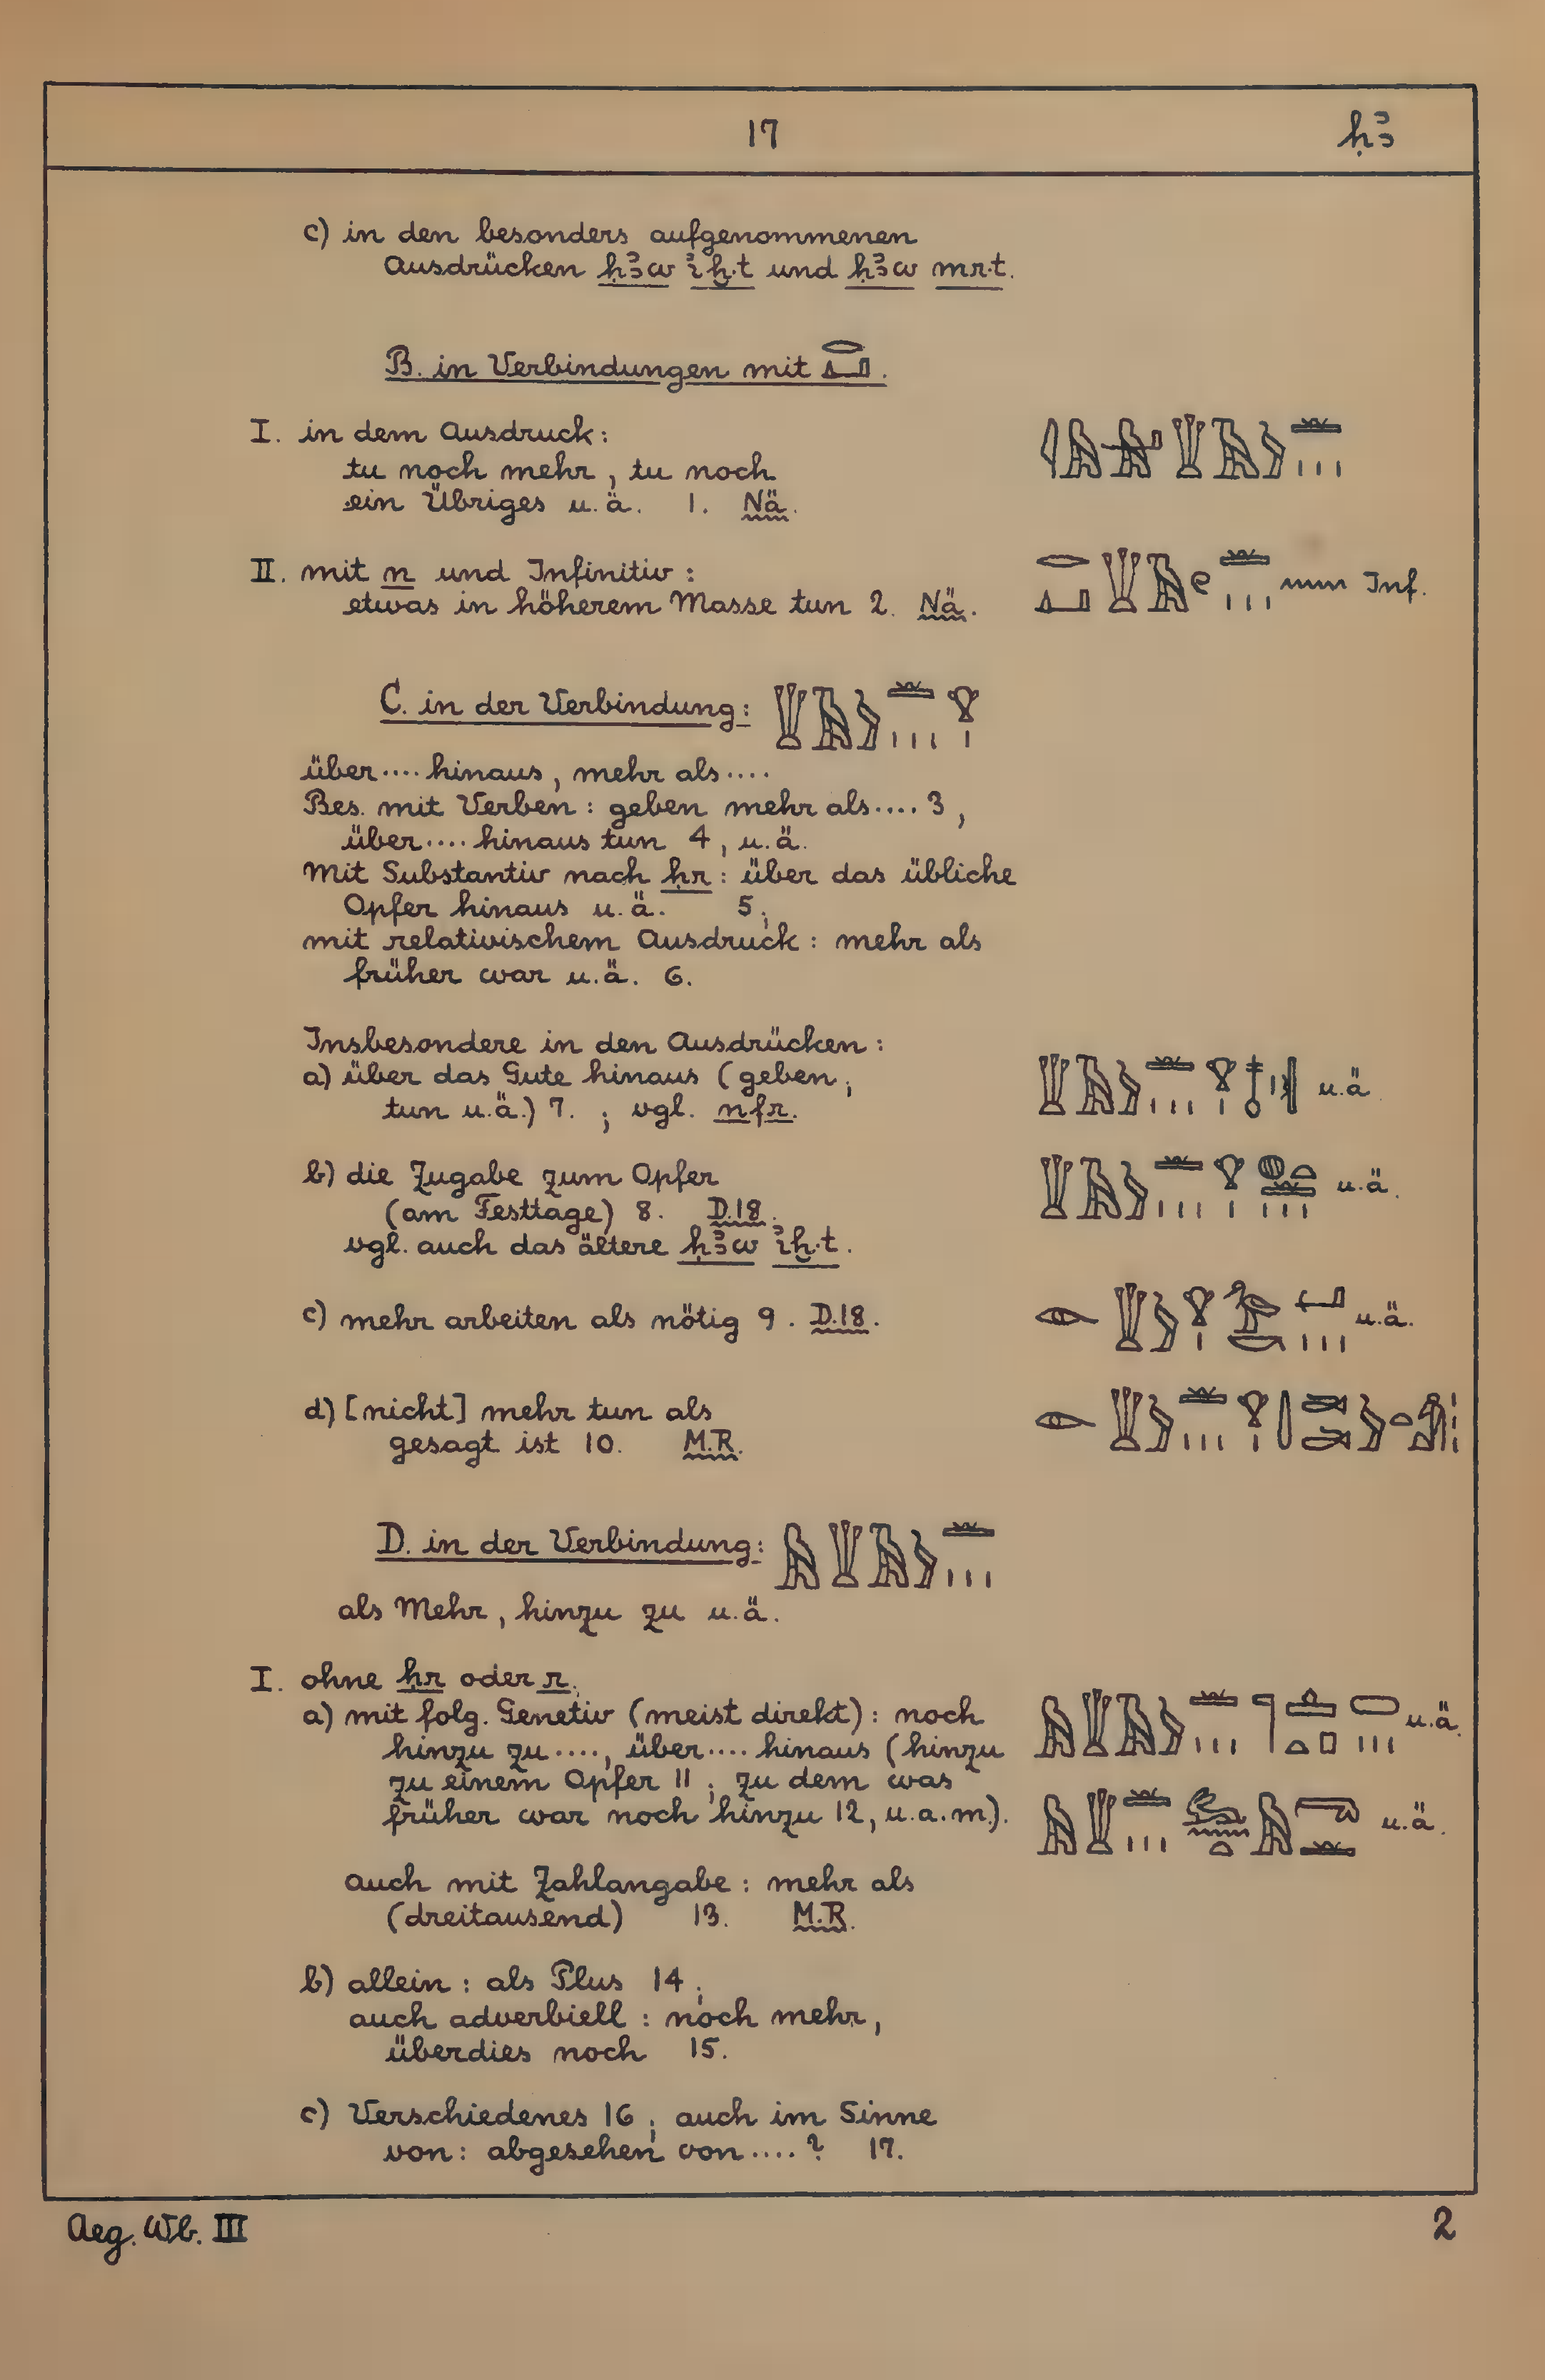 17 ḥꜣ
c) in den besonders aufgenommenen
Ausdrücken ḥꜣw iḫ.t und ḥꜣw mr.t.
B. in Verbindungen mit 𓂋𓏙.
I. in dem Ausdruck:
tu noch mehr, tu noch
ein Übriges u.ä. 1. Nä.
II. mit n und Infinitiv: Inf.
etwas in höherem Masse tun 2. Nä.
C. in der Verbindung:
über .... hinaus, mehr als ....
Bes. mit Verben: geben mehr als .... 3,
über .... hinaus tun 4, u.ä.
Mit Substantiv nach ḥr: über das übliche
Opfer hinaus u.ä. 5;
mit relativischem Ausdruck: mehr als
früher war u.ä. 6.
Insbesondere in den Ausdrücken:
a) über das Gute hinaus (geben, u.ä.
tun u.ä.) 7. ; vgl. nfr.
b) die Zugabe zum Opfer u.ä.
(am Festtage) 8. D.18.
vgl. auch das ältere ḥꜣw iḫ.t.
c) mehr arbeiten als nötig 9. D.18. u.ä.
d) [nicht] mehr tun als
gesagt ist 10. M.R.
D. in der Verbindung:
als Mehr, hinzu zu u.ä.
I. ohne ḥr oder r.
a) mit folg. Genetiv (meist direkt): noch u.ä.
hinzu zu ...., über .... hinaus (hinzu
zu einem Opfer 11; zu dem was
früher war noch hinzu 12, u.a.m.). u.ä.
auch mit Zahlangabe: mehr als
(dreitausend) 13. M.R.
b) allein: als Plus 14;
auch adverbiell: noch mehr,
überdies noch 15.
c) Verschiedenes 16; auch im Sinne
von: abgesehen von ....? 17.
Aeg. Wb. III 2